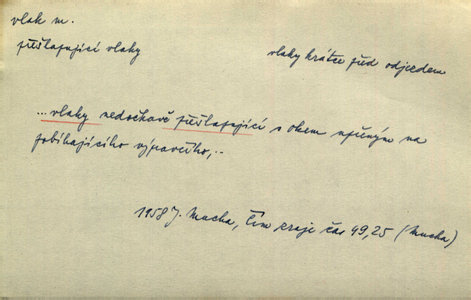 vlak m.
přešlapující vlaky
vlaky krátce před odjezdem
...vlaky nedočkavě přešlapující s okem upřeným na
pobíhajícího výpravčího,..
1958 J. Mucha, Čím zraje čas 49,25 (Mucha)